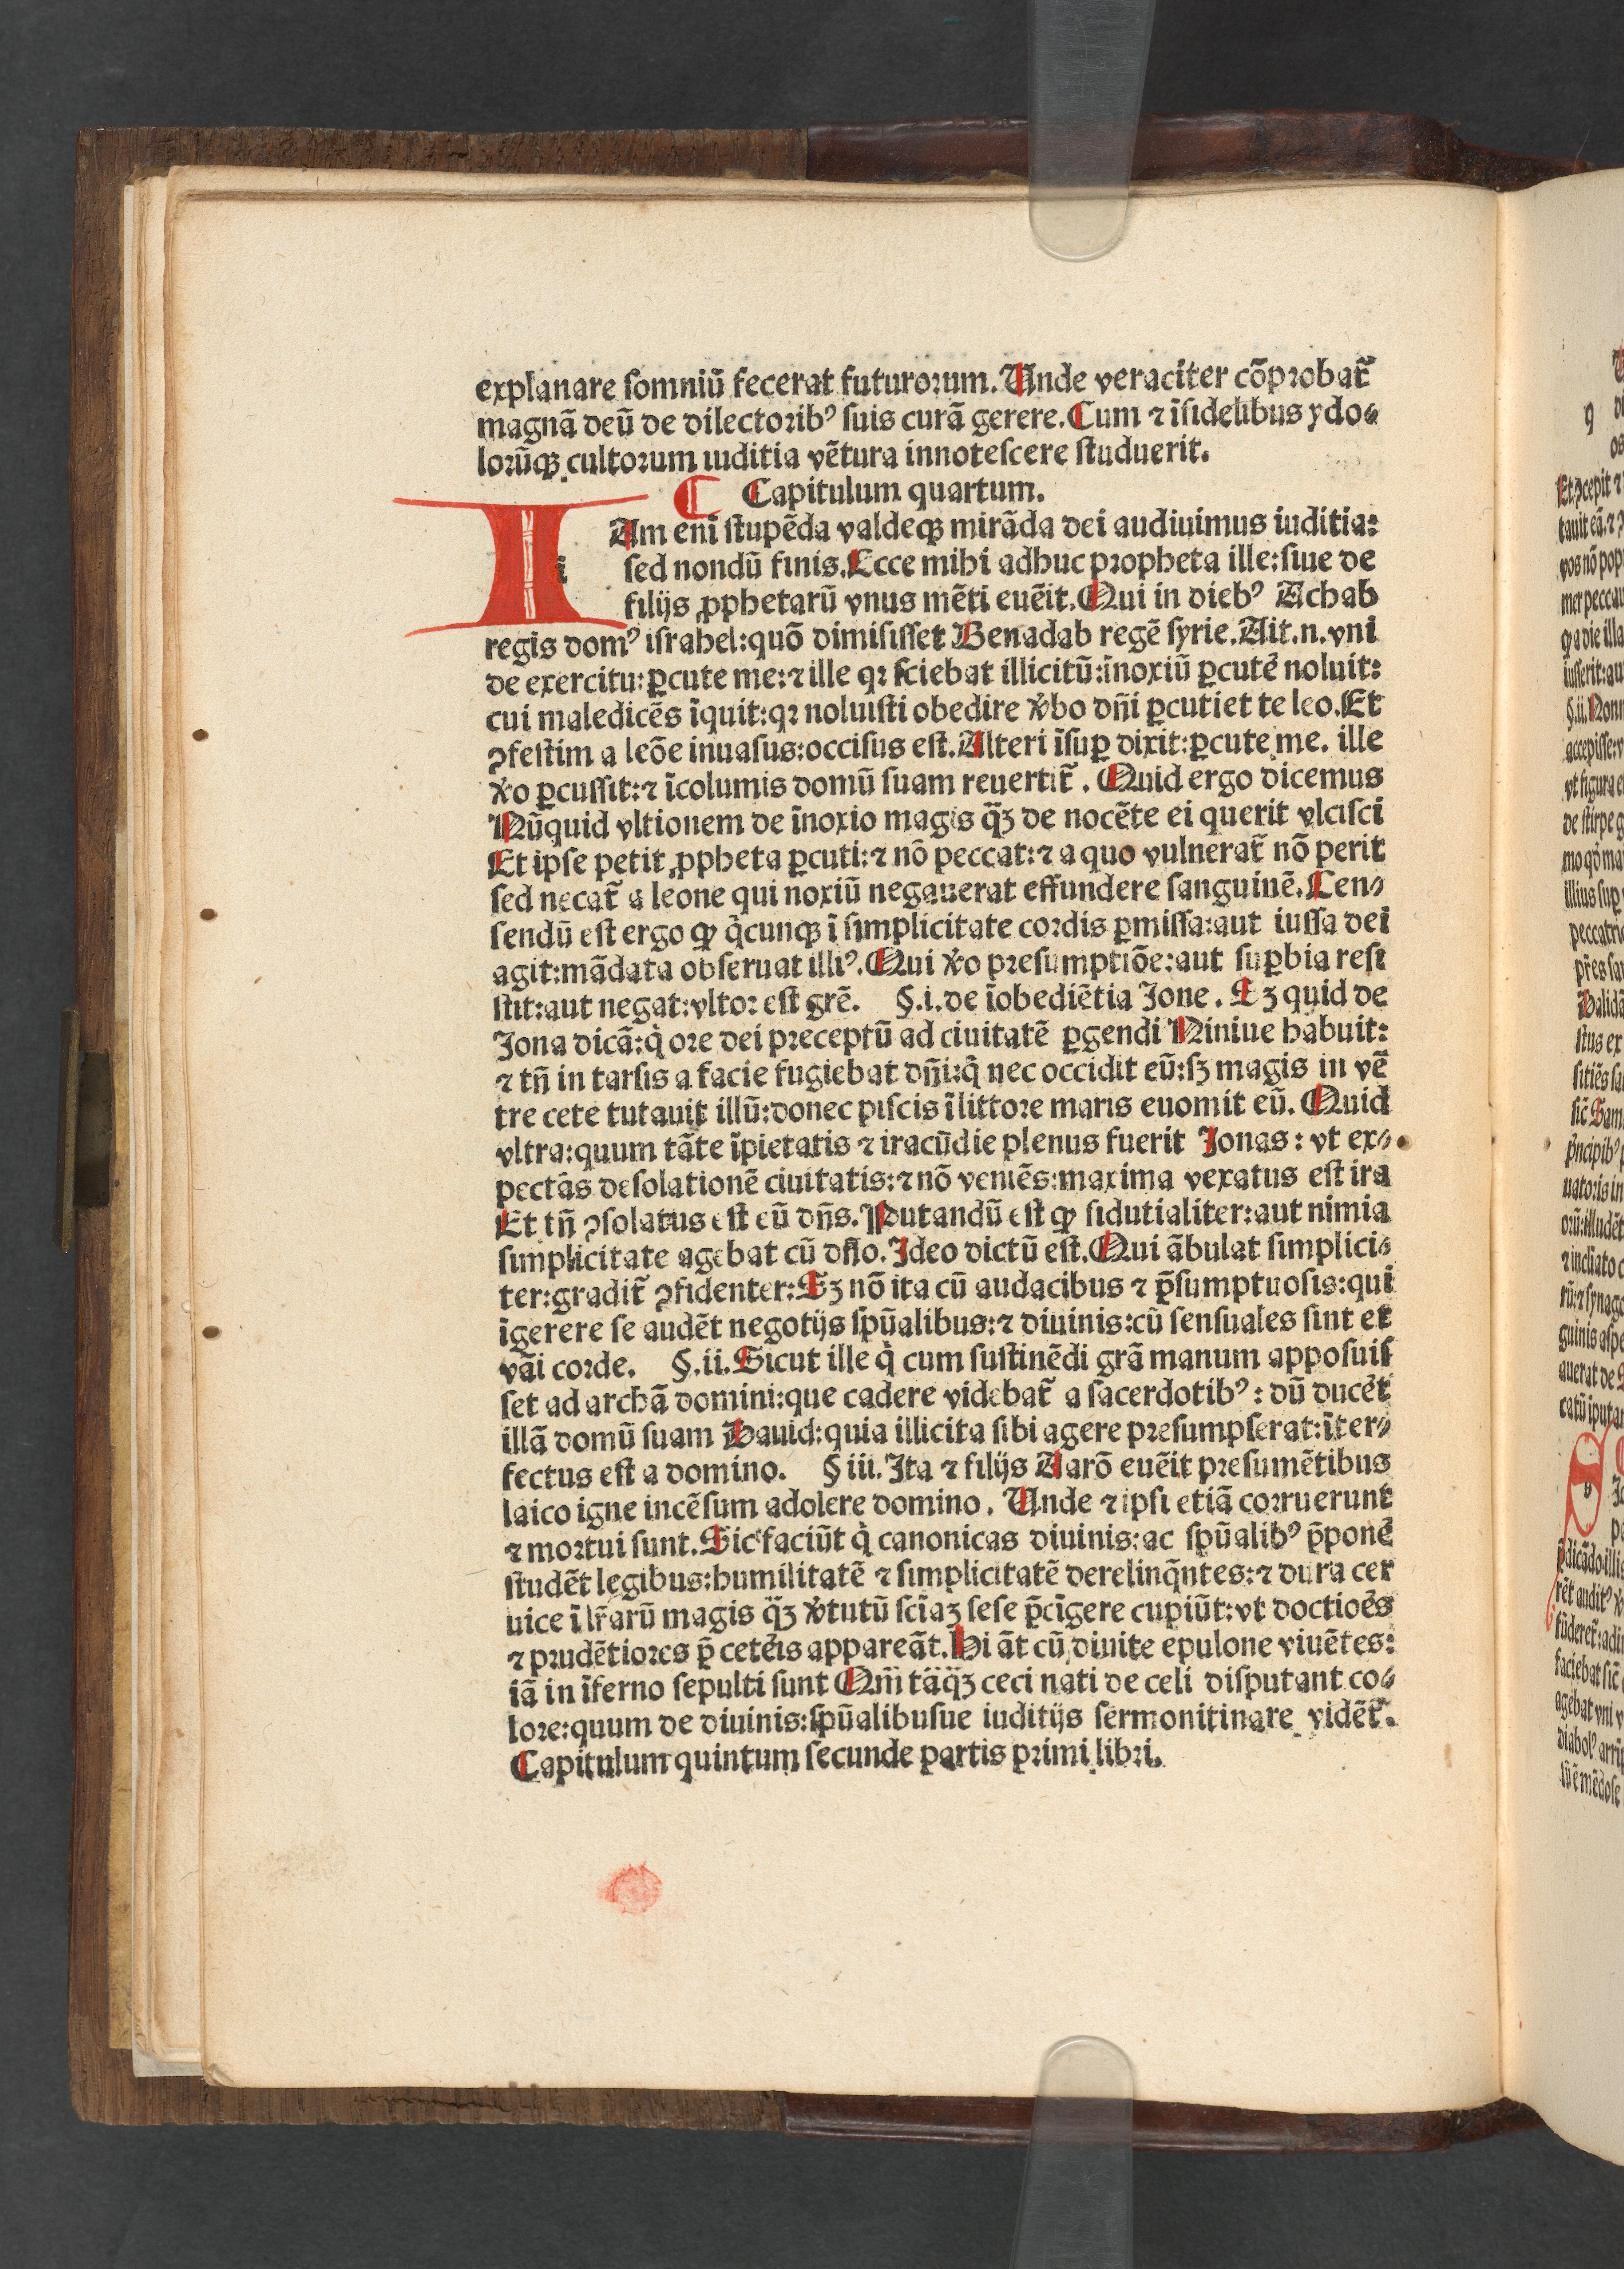 explanare ſomniū fecerat futurorum. Unde veraciter cōprobat̄
magnā deū de dilectoribꝰ ſuis curā gerere. Cum ⁊ īfidelibus ydo⸗
lorūqꝫ cultorum iuditia vētura innoteſcere ſtuduerit.
¶ Capitulum quartum.
IAm enī ſtupēda valdeqꝫ mirāda dei audiuimus iuditia:
ſed nondū finis. Ecce mihi adhuc propheta ille: ſiue de
filijs ꝓphetarū vnus mēti euēit. Qui in diebꝰ Achab
regis domꝰ iſrahel: quō dimiſiſſet Benadab regē ſyrie. Ait .n. vni
de exercitu: ꝑcute me: ⁊ ille qꝛ ſciebat illicitū: īnoxiū ꝑcutē noluit:
cui maledicēs īquit: qꝛ noluiſti obedire ꝟbo dn̄i ꝑcutiet te leo. Et
ꝯfeſtim a leōe inuaſus: occiſus eſt. Alteri īſuꝑ dixit: ꝑcute me. ille
ꝟo ꝑcuſſit: ⁊ īcolumis domū ſuam reuertit̄. Quid ergo dicemus
Nūquid vltionem de īnoxio magis q̄ꝫ de nocēte ei querit vlciſci
Et ipſe petit ꝓpheta ꝑcuti: ⁊ nō peccat: ⁊ a quo vulnerat̄ nō perit
ſed necat̄ a leone qui noxiū negauerat effundere ſanguinē. Cen⸗
ſendū eſt ergo ꝙ q̇cunqꝫ ī ſimplicitate cordis ꝑmiſſa: aut iuſſa dei
agit: mādata obſeruat illiꝰ. Qui ꝟo preſumptiōe: aut ſuꝑbia reſi
ſtit: aut negat: vltor eſt grē. §.i. de īobediētia Jone. Sꝫ quid de
Jona dicā: q̇ ore dei preceptū ad ciuitatē ꝑgendi Niniue habuit:
⁊ tn̄ in tarſis a facie fugiebat dn̄i: q̇ nec occidit eū: ſꝫ magis in vē
tre cete tutauit illū: donec piſcis ī littore maris euomit eū. Quid
vltra: quum tāte īpietatis ⁊ iracūdie plenus fuerit Jonas: vt ex⸗
pectās deſolationē ciuitatis: ⁊ nō veniēs: maxima vexatus eſt ira
Et tn̄ ꝯſolatus eſt eū dn̄s. Putandū eſt ꝙ fidutialiter: aut nimia
ſimplicitate agebat cū dn̄o. Ideo dictū eſt. Qui ābulat ſimplici⸗
ter: gradit̄ ꝯfidenter: Sꝫ nō ita cū audacibus ⁊ p̄ſumptuoſis: qui
īgerere ſe audēt negotijs ſpūalibus: ⁊ diuinis: cū ſenſuales ſint et
vāi corde. §.ii. Sicut ille q̇ cum ſuſtinēdi grā manum appoſuiſ
ſet ad archā domini: que cadere videbat̄ a ſacerdotibꝰ: dū ducēt
illā domū ſuam Dauid: quia illicita ſibi agere preſumpſerat: īter⸗
fectus eſt a domino. § iii. Ita ⁊ filijs Aarō euēit preſumētibus
laico igne incēſum adolere domino. Unde ⁊ ipſi etiā corruerunt
⁊ mortui ſunt. Sic faciūt q̇ canonicas diuinis: ac ſpūalibꝰ p̄ponē
ſtudēt legibus: humilitatē ⁊ ſimplicitatē derelinq̄ntes: ⁊ dura cer
uice ī lr̄arū magis q̄ꝫ ꝟtutū ſciāꝫ ſeſe p̄cīgere cupiūt: vt doctioēs
⁊ prudētiores p̄ cetēis appareāt. Hi āt cū diuite epulone viuētes:
iā in īferno ſepulti ſunt Qm̄ tāq̄ꝫ ceci nati de celi diſputant co⸗
lore: quum de diuinis: ſpūalibuſue iuditijs ſermonitinare vidēt̄.
Capitulum quintum ſecunde partis primi libri.